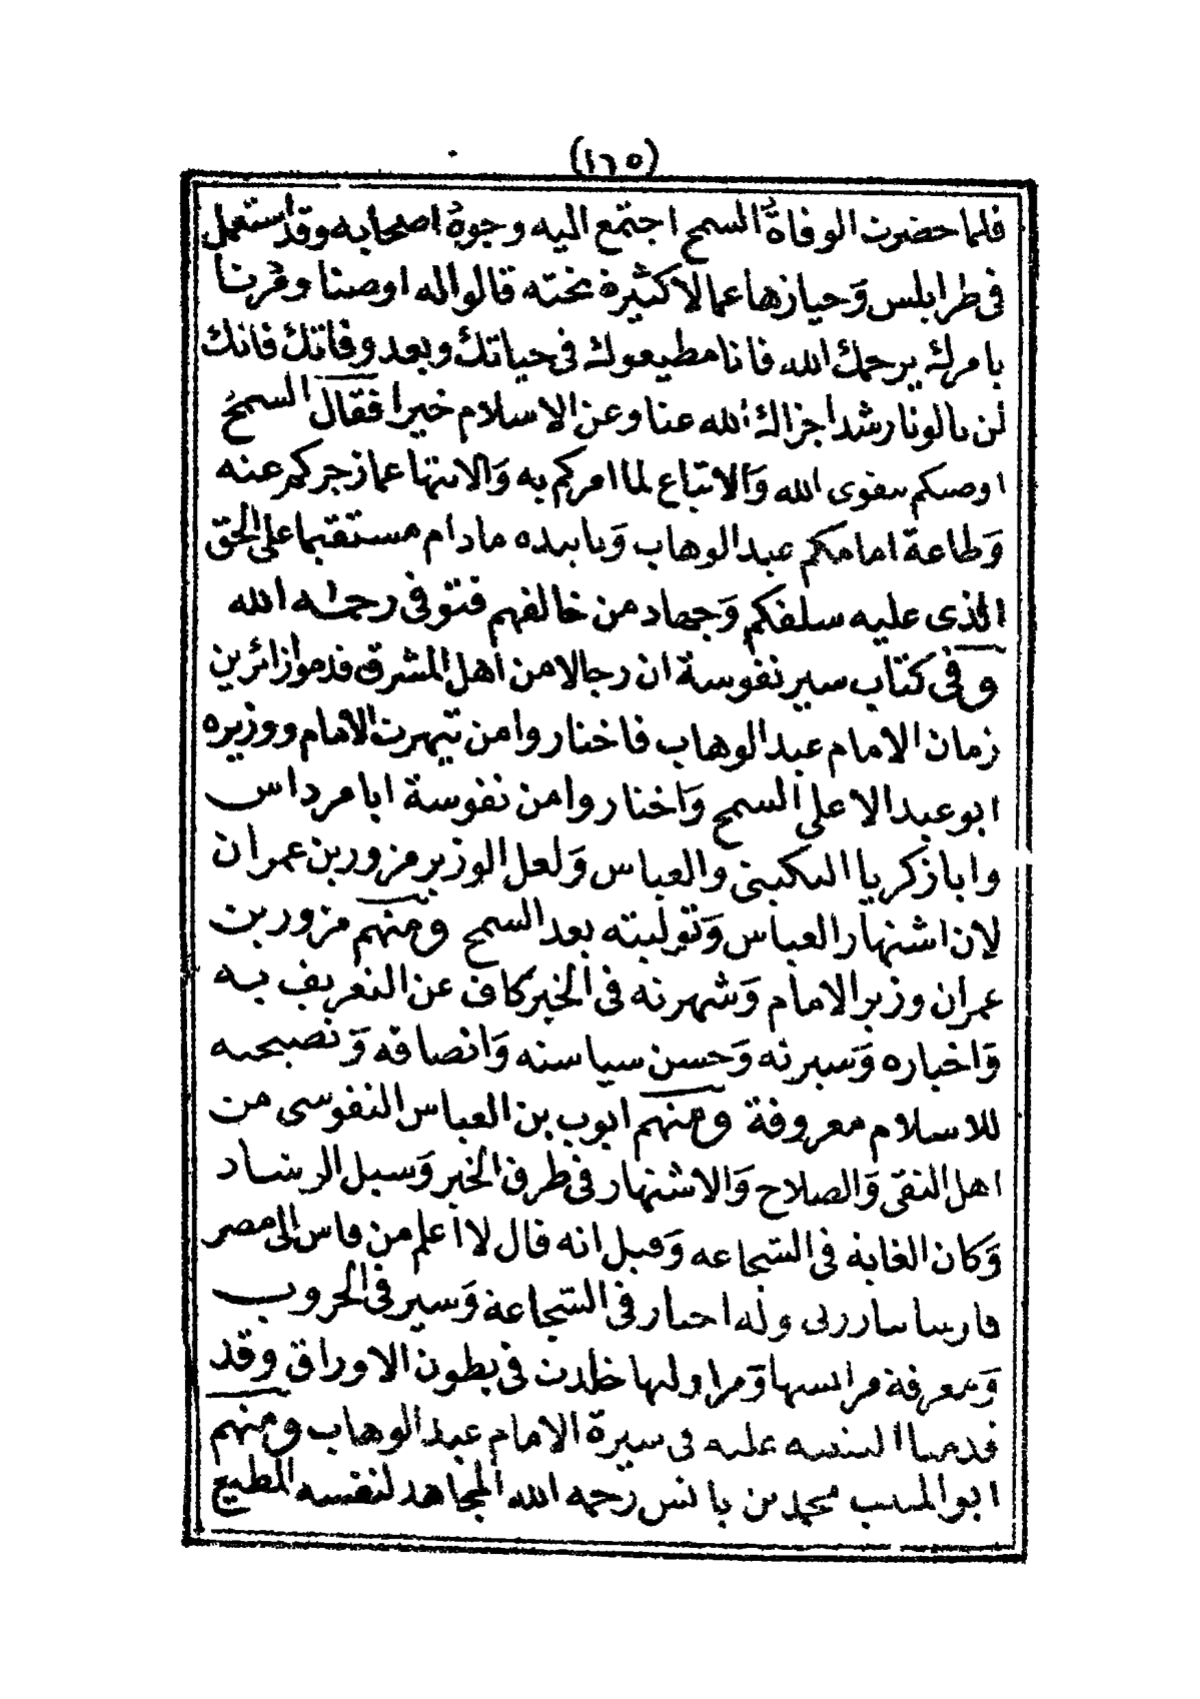 (١٦٥)
فلما حضرت الوفاة السمح اجتمع اليه وجوه اصحابه وقد استعمل
فى طرابلس وَحيازها عمالا كثيرة تحته قالوا له اوصنا ومرنا
بامرك يرحمك الله فانا مطيعوك فى حياتك وبعد وفاتك فانك
لن تالونا رشدا جزاك الله عنا وعن الاسلام خيرا فقال السمح
اوصيكم بتقوى الله وَالاتباع لما امركم به وَالانتها عما زجركم عنه
وَطاعة امامكم عبد الوهاب وَتاييده مادام مستقيما على الحق
الذى عليه سلفكم وَجهاد من خالفهم فتوفى رحمه الله
وفى كتاب سير نفوسة ان رجالا من اهل المشرق قدموا زائرين
زمان الامام عبد الوهاب فاختاروا من تيهرت الامام ووزيره
ابو عبد الاعلى السمح وَاختاروا من نفوسة ابا مرداس
وابا زكريا التكيتى والعباس وَلعل الوزير مزور بن عمران
لان اشتهار العباس وَتوليته بعد السمح ومنهم مزور بن
عمران وزير الامام وَشهرته فى الخير كاف عن التعريف به
وَاخباره وَسيرته وَحسن سياسته وَانصافه وَنصيحته
للاسلام معروفة ومنهم ايوب بن العباس النفوسى من
اهل التقى وَالصلاح وَالاشتهار فى طرق الخير وَسبل الرشاد
وَكان الغاية فى الشجاعه وَقيل انه قال لا اعلم من فاس الى مصر
فارسا بارزنى وله اخبار فى الشجاعة وَسير فى الحروب
وَبمعرفة فرائسها وَمزاولتها خلدت فى بطون الاوراق وقد
قدمنا التنبيه عليه فى سيرة الامام عبد الوهاب ومنهم
ابو المنيب محمد بن يانس رحمه الله المجاهد لنفسه المطيع